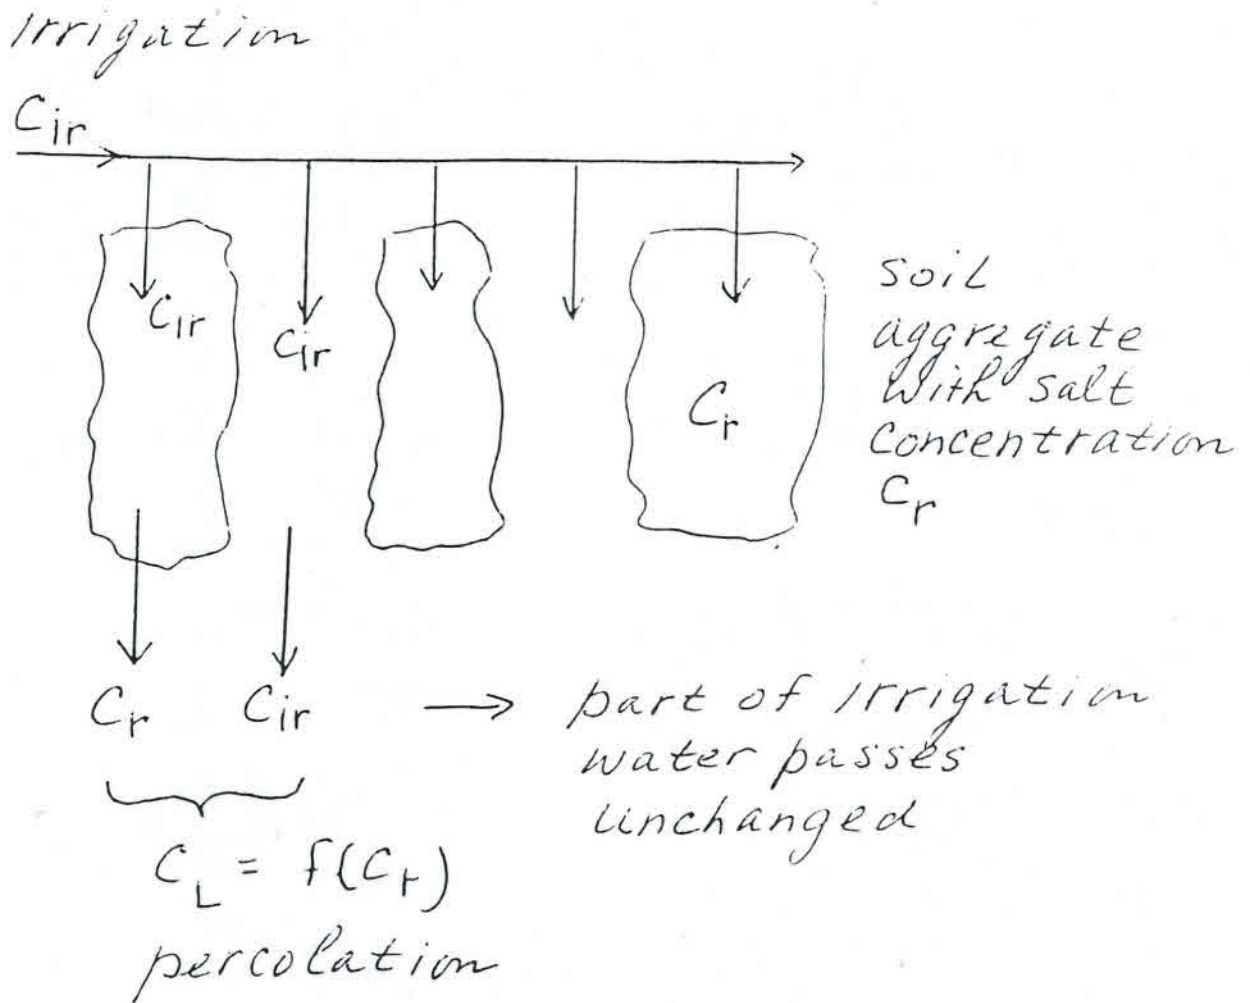 irrigation
Cir
Cir
Cir
soil
aggregate
with salt
concentration
Cr
Cr
Cr Cir → part of irrigation
water passes
unchanged
CL = f(Cr)
percolation